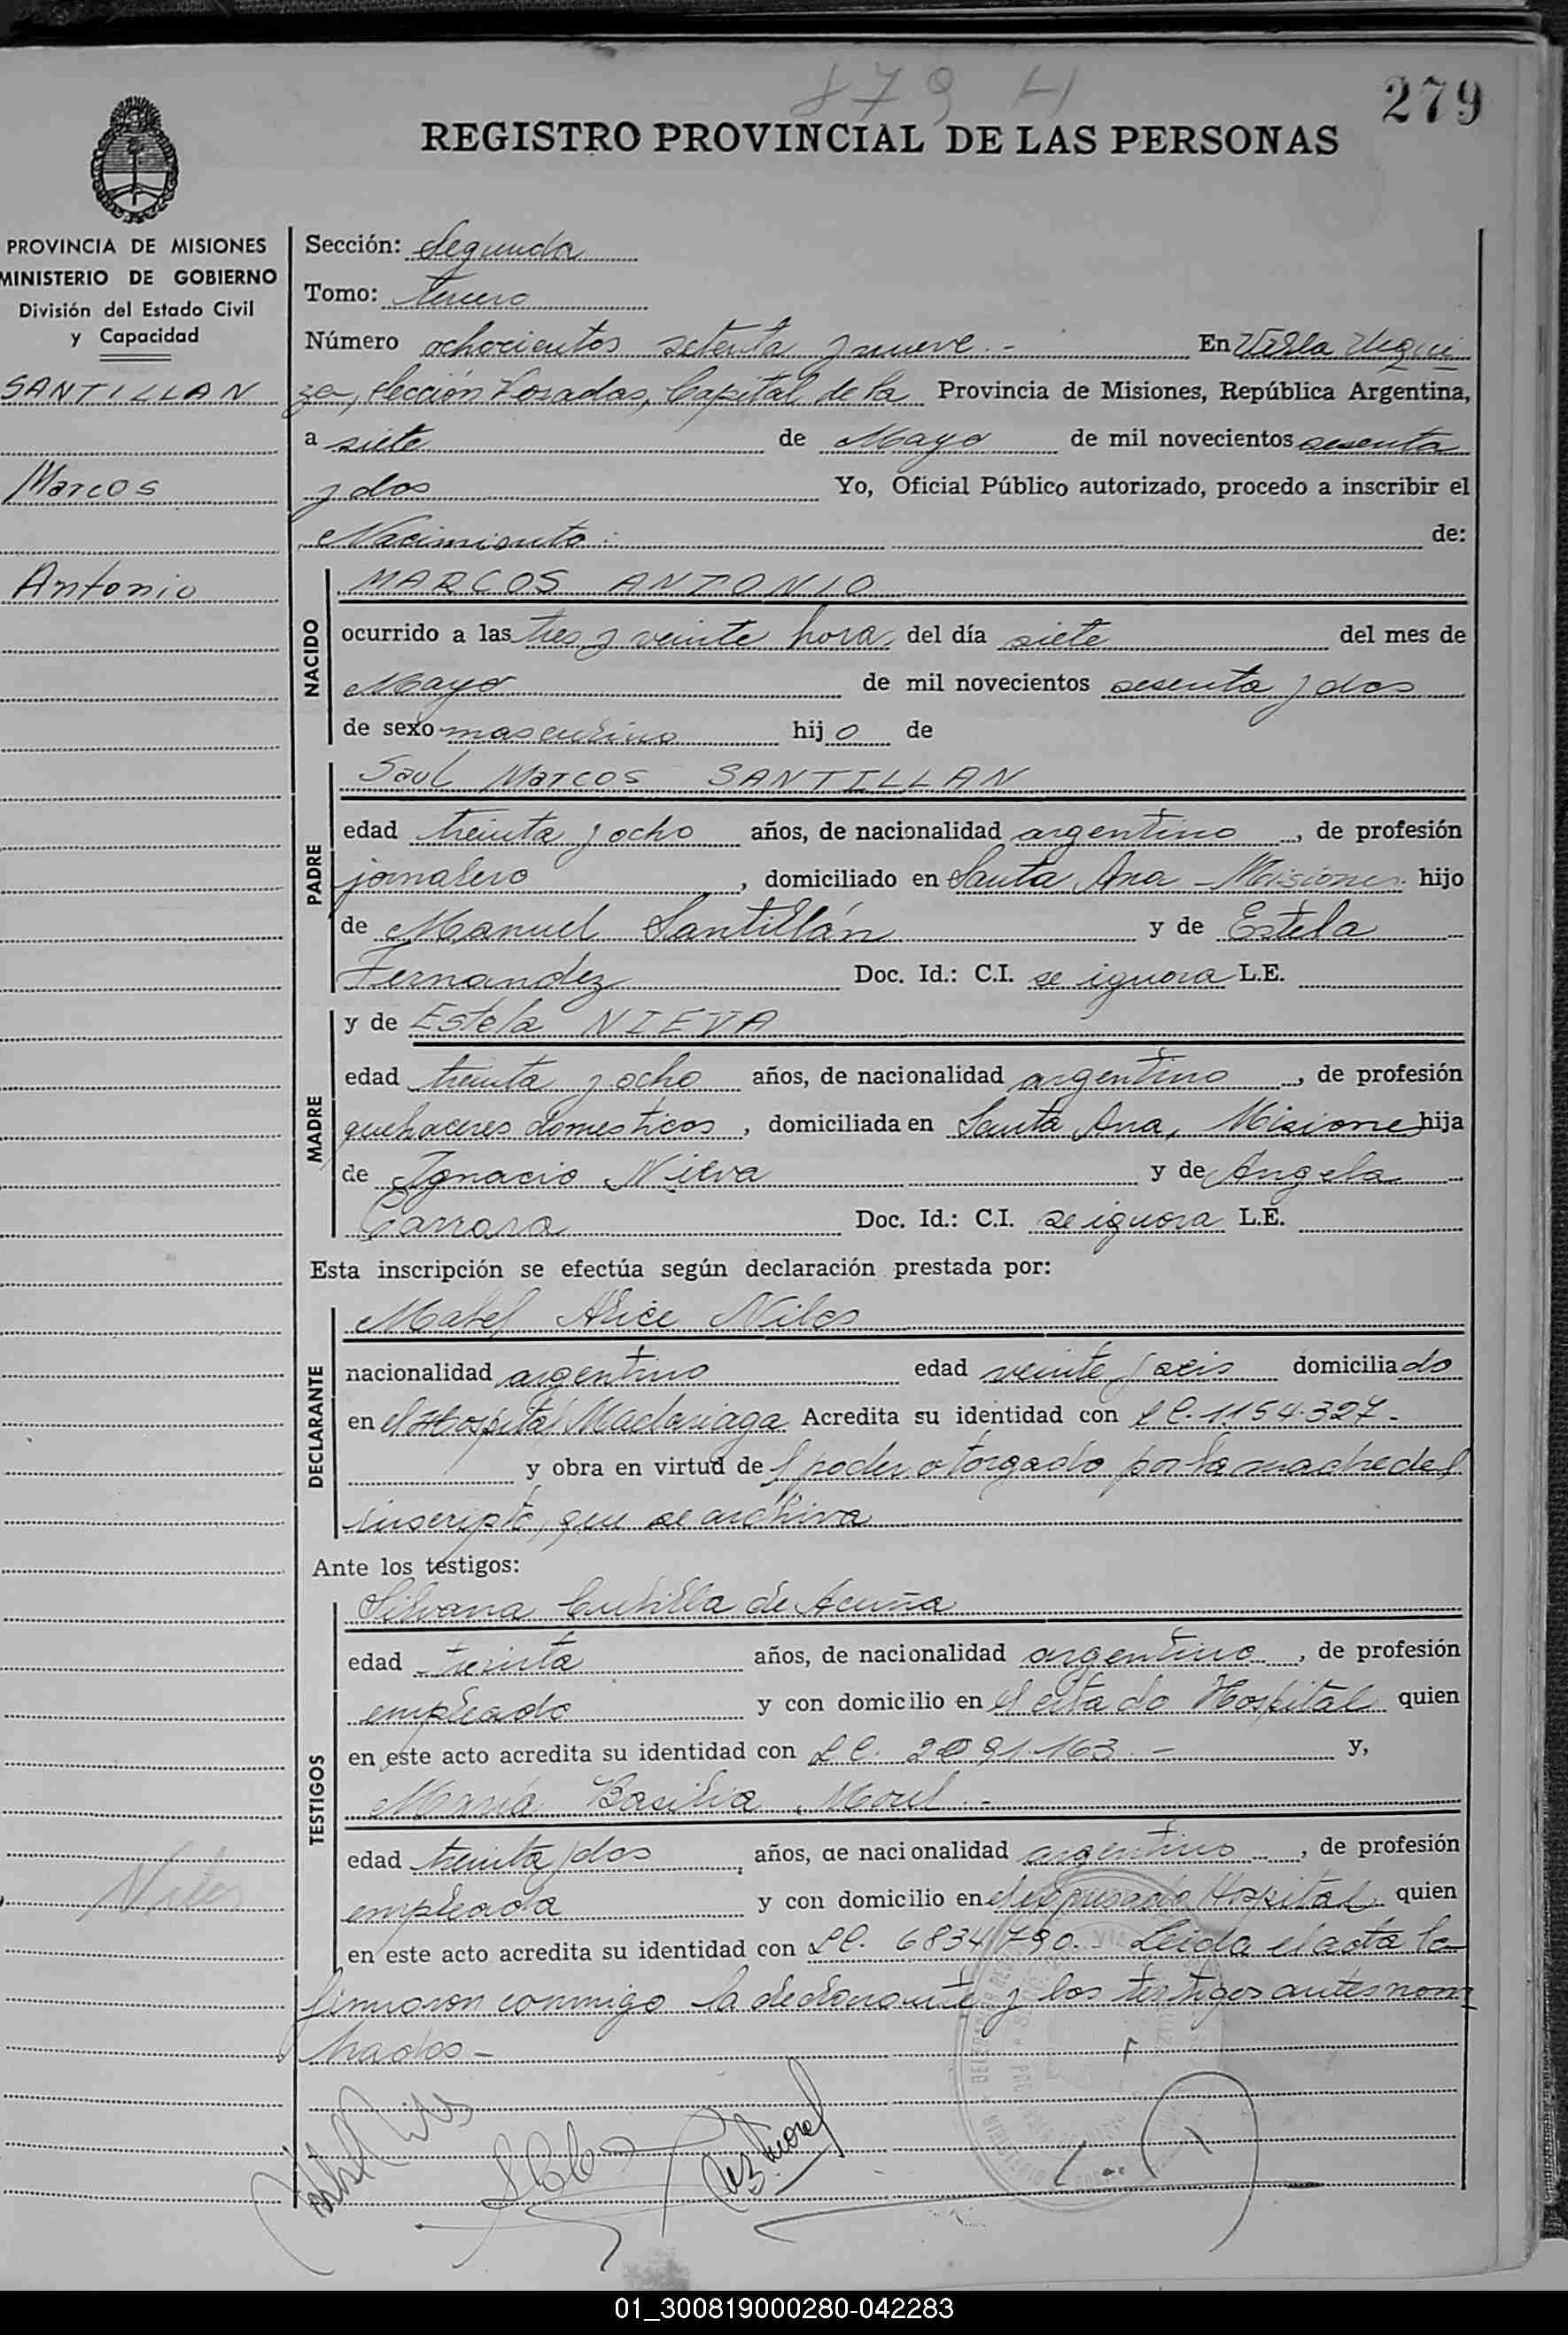 879 H
279
REGISTRO PROVINCIAL DE LAS PERSONAS
PROVINCIA DE MISIONES
MINISTERIO DE GOBIERNO
División del Estado Civil
y Capacidad
SANTILLAN
Marcos
Antonio
Niles
Sección: Segunda
Tomo: tercero
Número ochocientos setenta y nueve.- En Villa Urqui
za, Sección Posadas, Capital de la Provincia de Misiones, República Argentina,
a siete de Mayo de mil novecientos sesenta
y dos Yo, Oficial Público autorizado, procedo a inscribir el
Nacimiento de:
NACIDO
MARCOS ANTONIO
ocurrido a las tres y veinte hora del día siete del mes de
Mayo de mil novecientos sesenta y dos
de sexo masculino hijo de
PADRE
Saul Marcos SANTILLAN
edad treinta y ocho años, de nacionalidad argentino, de profesión
jornalero, domiciliado en Santa Ana - Misiones hijo
de Manuel Santillán y de Estela
Fernandez Doc. Id.: C.I. se ignora L.E.
MADRE
y de Estela NIEVA
edad treinta y ocho años, de nacionalidad argentino, de profesión
quehaceres domesticos, domiciliada en Santa Ana, Misiones hija
de Ignacio Nieva y de Angela
Doc. Id.: C.I. se ignora L.E.
Esta inscripción se efectúa según declaración prestada por:
DECLARANTE
Mabel Alice Niles
nacionalidad argentino edad veinte y seis domiciliado
en el Hospital Madariaga Acredita su identidad con L C. 1.154.327-
y obra en virtud del poder otorgado por la madre del
inscripto, que se archiva
Ante los testigos:
TESTIGOS
Silvana Cubilla de Acuña
edad treinta años, de nacionalidad argentino, de profesión
empleado y con domicilio en el citado Hospital quien
en este acto acredita su identidad con L C. 2091.163.- y,
María Basilia Morel.-
edad treinta y dos años, de nacionalidad argentino, de profesión
empleada y con domicilio en el expresado Hospital quien
en este acto acredita su identidad con L C. 6834790. Leida el acta la
firmaron conmigo la declarante y los testigos antes nom
brados-
01_300819000280-042283